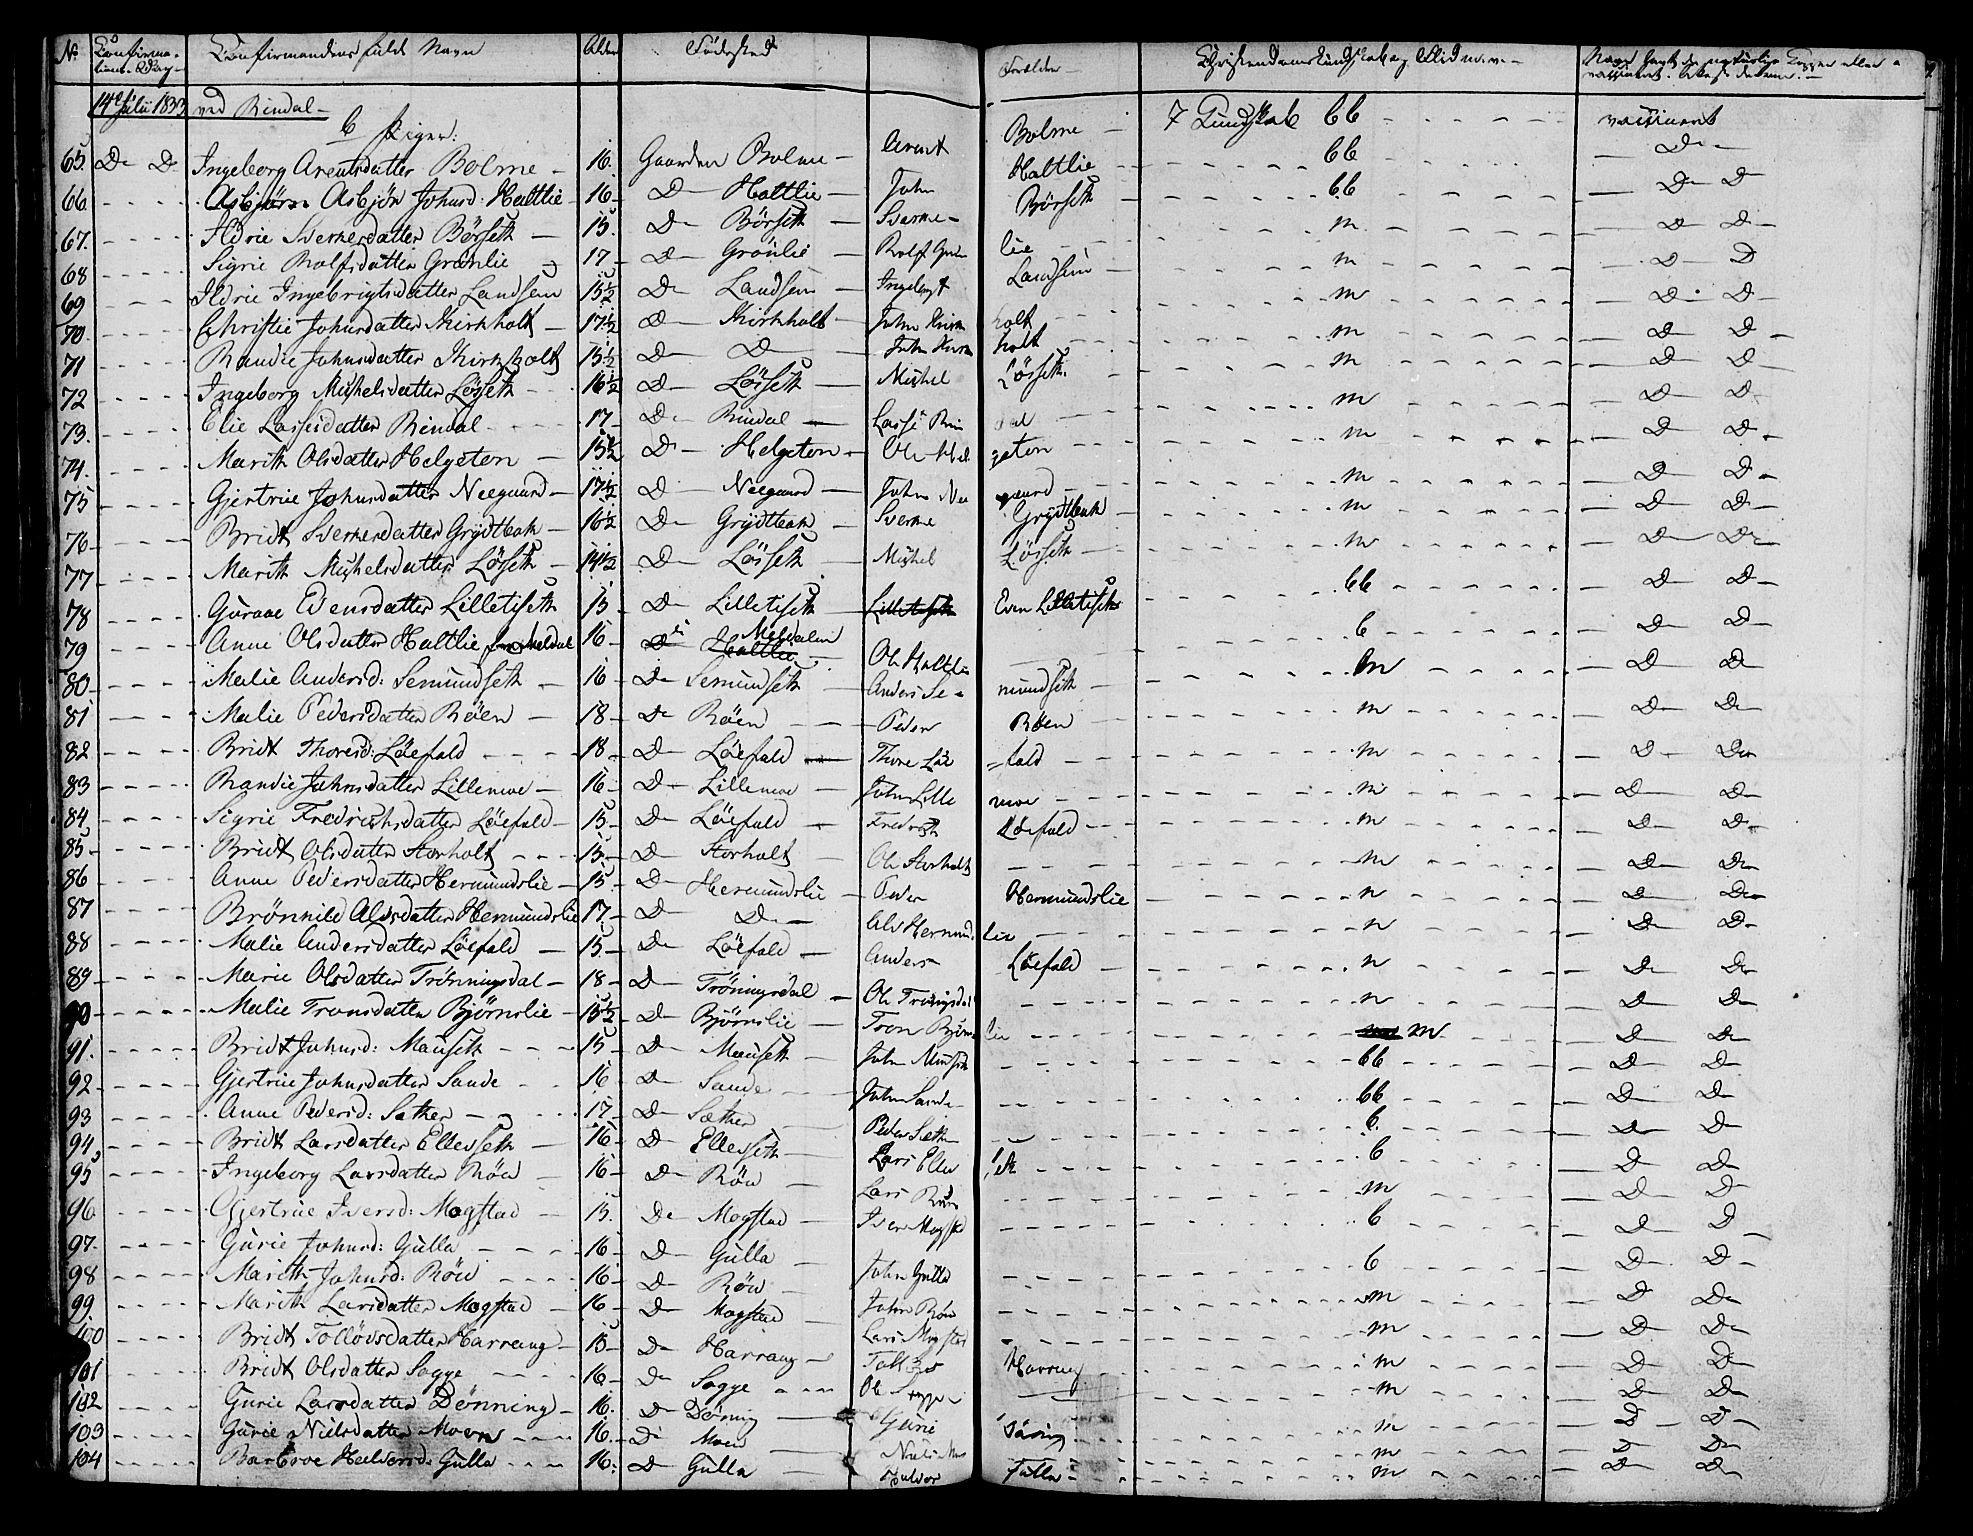 No. Confirmations-Dag Confirmandens fulde Navn Alder Fødested Forældre Christendomskundskab og Flid m.v. Naar havt de naturlige Kopper eller vaccineret
14de Julii 1833 ved Rindal
b Piger:
65. Do Do Ingeborg Arentsdatter Bolme 16. Gaarden Bolme Arent Bolme 7 Kundskab bb vaccineret
66 Asbjørn Asbjør Johnsd: Haltlie 16 D Haltlie John Haltlie bb D
67. Ildrie Sverkersdatter Børseth 15. D Børseth Sverke Børseth bb D D
68 Sigrie Rolfsdatter Grønlie 17 D Grønlie Rolf Grønlie m D D
69 Ildrie Ingebrigtsdatter Landsem 15½ D Landsem Ingebrigt Landsem m D D
70. Christie Johnsdatter Kirkholt 17½ D Kirkholt John Kirkholt m D D
71 Randie Johnsdatter Kirkholt 15½ D D John Kirkholt m D D
72 Ingeborg Mikkelsdatter Løfseth 16½ D Løfseth Mikkel Løfseth m D D
73. Elie Lassesdatter Rindal 17 D Rindal Lasse Rindal m D D
74. Marith Olsdatter Helgeton 15½ D Helgeton Ole Helgeton m D D
75 Gjertrue Johnsdatter Neegaard 17½ D Neegaard John Neegaard m D D
76 Bridt Sverkersdatter Grydtbak 16½ D Grydtbak Sverke Grydtbak m D D
77 Marith Mikkelsdatter Løfseth 14½ D Løfseth Mikkel Løfseth m D D
78 Guraae Evensdatter Lilletiseth 15 D Lilletiseth Lilletiseth Even Lilletiseth bb D D
79 Anne Olsdatter Haltlie fra Meldal 16 D Haltlie Meldalen Ole Haltlie b D D
80 Malie Andersd: Semundseth 16 D Semundseth Anders Semundseth m D D
81 Malie Pedersdatter Røen 18 D Røen Peder Røen m D D
82 Bridt Thoresd: Løefald 18 D Løefald Thore Løefald m D D
83 Randie Johnsdatter Lillemoe 16 D Lillemoe John Lillemoe m D D
84 Sigrie Fredrichsdatter Løefald 15 D Løefald Fredrich Løefald m D D
85 Bridt Olsdatter Storholt 15 D Storholt Ole Storholt m D D
86 Anne Pedersdatter Hermundslie 15 D Hermundslie Peder Hermundslie n D D
87 Brønnild Alvsdatter Hermundslie 17. D D Alv Hermundslie n D D
88 Malie Andersdatter Løefald 15 D Løefald Anders Løefald n D D
89 Marie Olsdatter Trønningsdal 18 D Trøningsdal Ole Trøningsdal n D D
90 Malie Tronsdatter Bjørnslie 15½ D Bjørnslie Tron Bjørnslie m D D
91. Bridt Johnsd: Mauseth 15 D Mauseth John Mauseth bb D D
92 Gjertrue Johnsdatter Sande 16 D Sande John Sande bb D D
93 Anne Pedersd: Sæther 17 D Sæther Peder Sæther b D D
94 Bridt Larsdatter Ellevseth 16 D Ellevseth Lars Ellevseth b D D
95 Ingeborg Larsdatter Røen 16 D Røen Lars Røen m D D
96 Gjertrue Iversd: Mogstad 15. D Mogstad Iver Mogstad b D D
97. Gurie Johnsd: Gulla 16 D Gulla John Gulla b D D
98 Marith Johnsd: Røen 16 D Røen John Røen m D D
99 Marith Larsdatter Mogstad 16 D Mogstad Lars Mogstad m D D
100 Bridt Tolløvsdatter Harrang 15 D Harrang Tolløv Harrang m D D
101 Bridt Olsdatter Sogge 16 D Sogge Ole Sogge m D D
102 Gurie Larsdatter Dønning 16. D Dønning Gurie m D D
103 Gurie Nielsdatter Moen 16. D Moen Niels Moen m D D
104 Barbroe Halvorsd: Gulla 16. D Gulla Halvor Gulla m D D